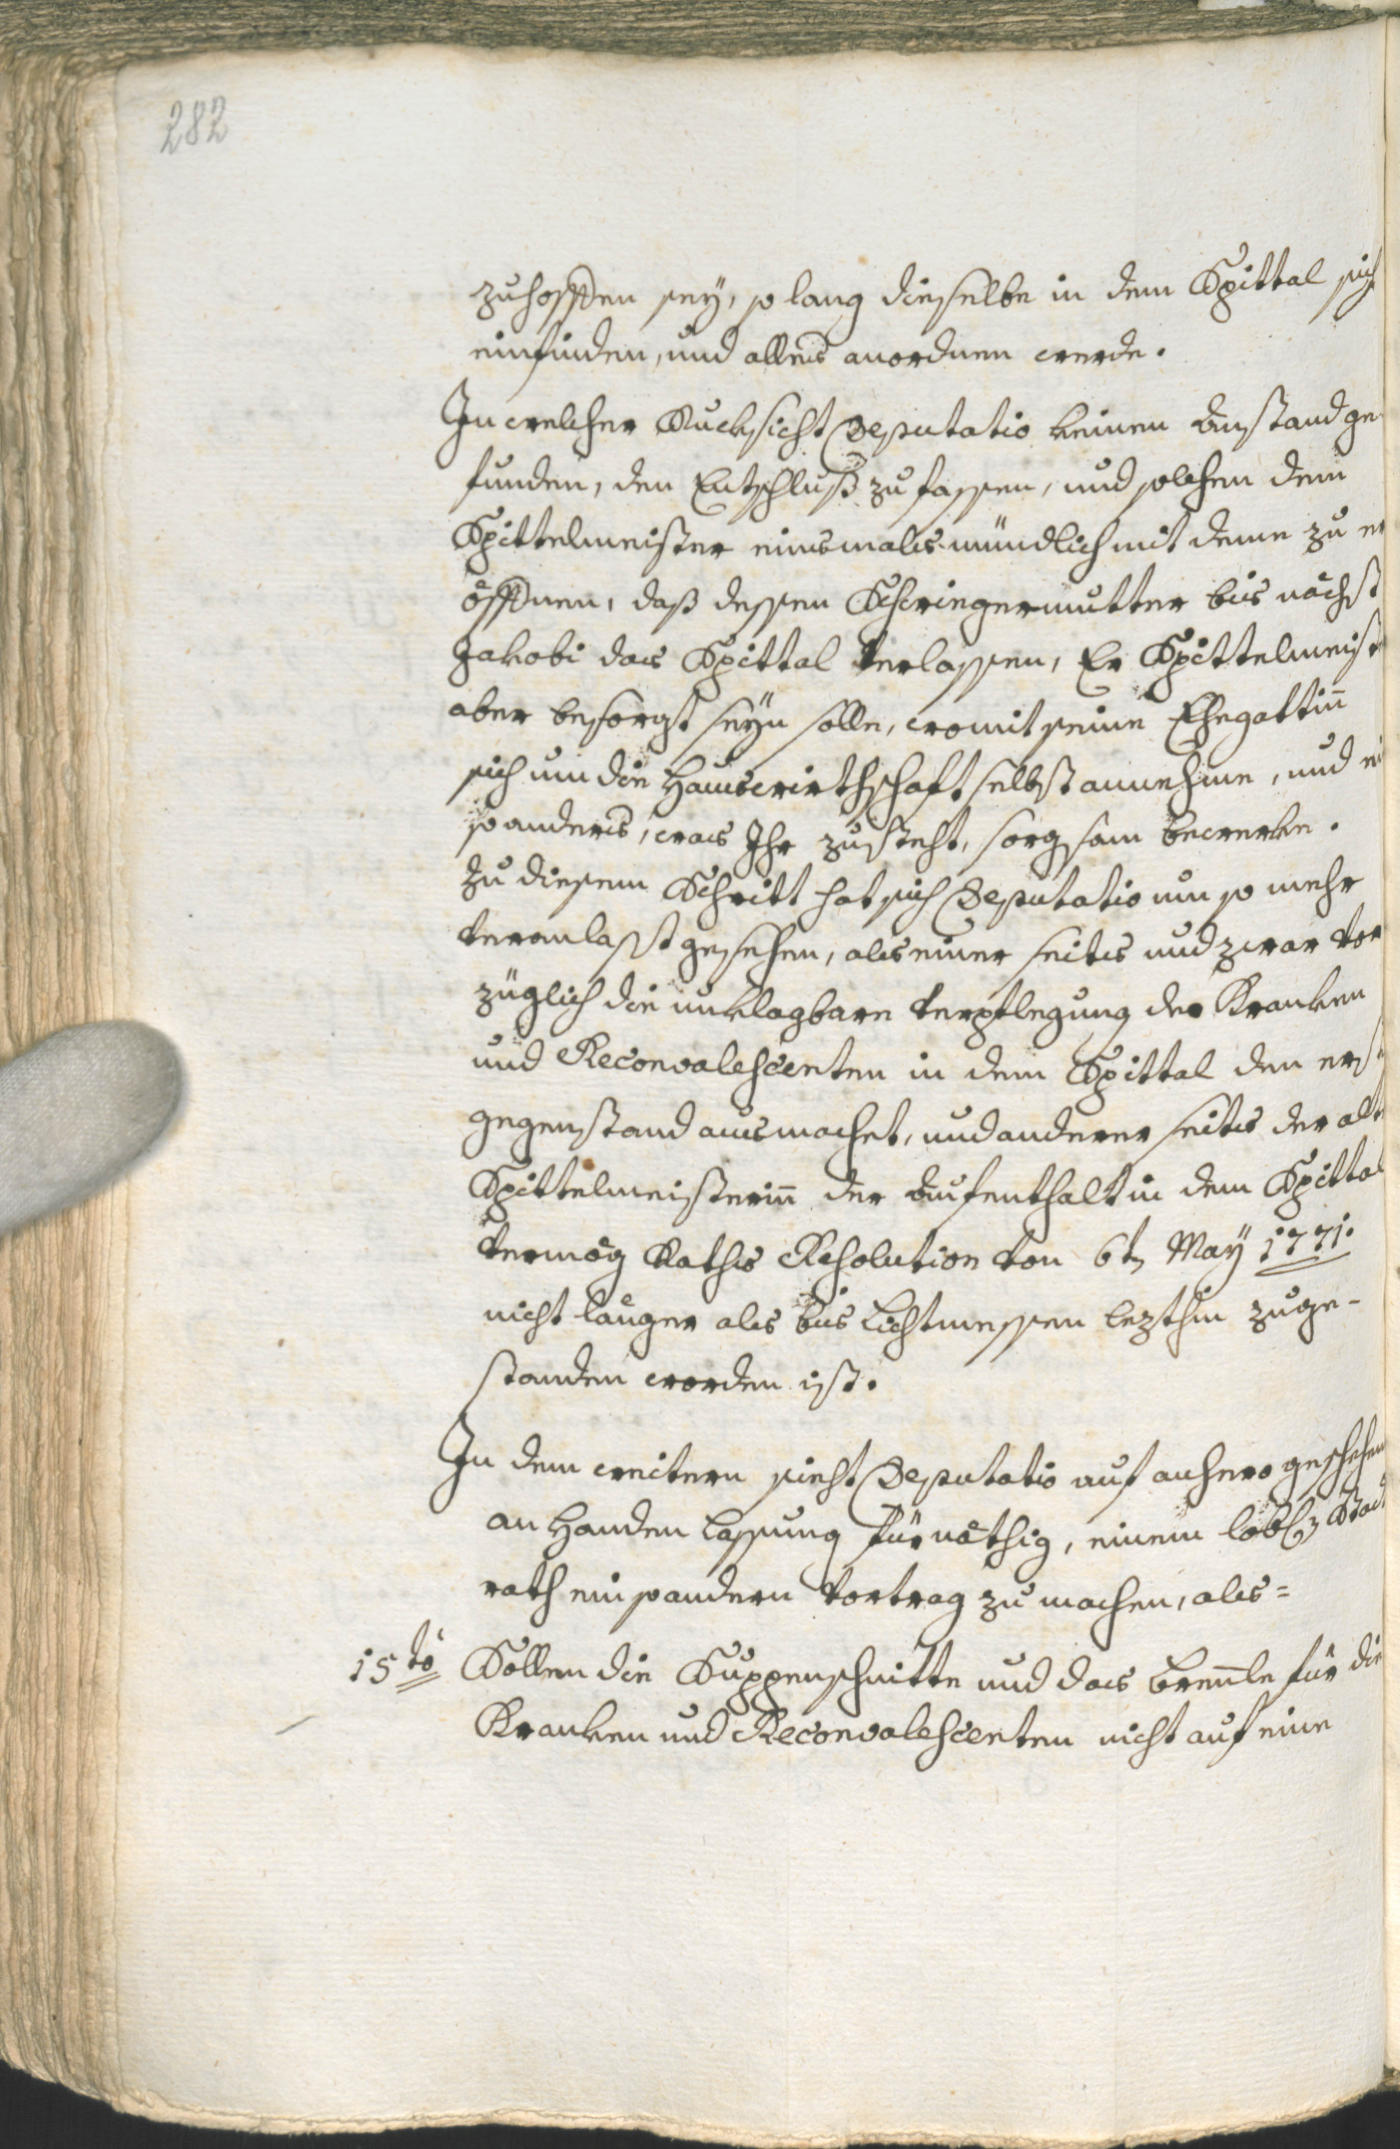 282
zuhoffen sey, so lang dieselbe in dem Spittal sich
einfinden, und alleis anordnen werde.
In welcher Rucksicht Deputatio keinen Anstand ge
funden, den Entschluß zu fassen, und solchen dem
Spittelmeister einsmals mündlich mit deme zu er
öffnen, daß dessen Schwiegermutter bis nächst
Jakobi das Spittal verlassen, Er Spittelmeister
aber besorgt seyn solle, womit seine Ehegattin̄
sich um die Hauswirthschaft selbst annehme, und ein
so anders, was Ihr zusteht, sorgsam bewerke.
Zu diesem Schritt hat sich Deputatio um so mehr
veranlasst gesehen, als einer seits und zwar vor
züglich die unklagbare Verpflegung der Kranken
und Reconvalescenten in dem Spittal den erst
gegenstand ausmachet, und anderer seits der alt
Spittelmeisterin̄ der Aufenthalt in dem Spittal
vermög Raths Resolution von 6tn May 1771.
nicht länger als bis Lichtmessen lezthin zuge-
standen worden ist.
In dem weitern sieht Deputatio auf anhero geschehen
an Handen lassung für nöthig, einem löbl. Stadt
rath ein so andern Vortrag zu machen, als=
15to Sollen die Suppenschnitte und das Brennle für die
Kranken und Reconvalescenten nicht auf eine